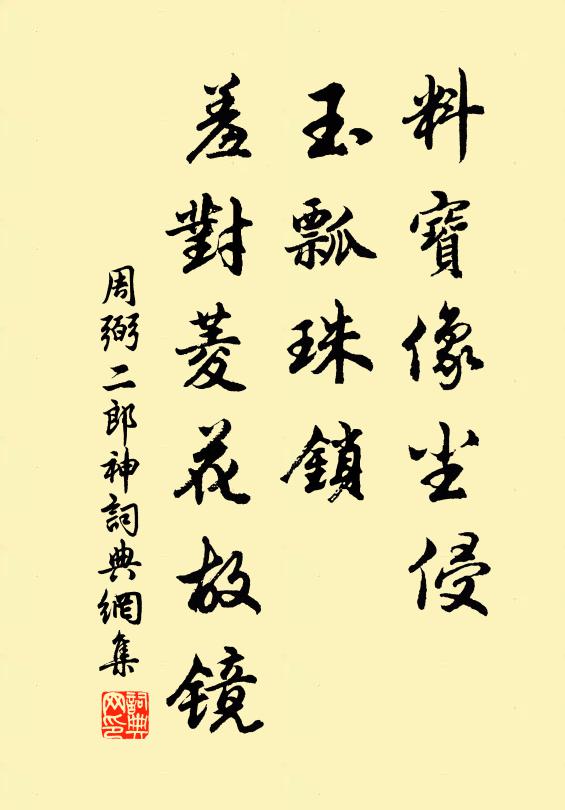 料寶像尘侵
玉瓢珠鎖
羞對菱花故镜
周弼二郎神詞典網集
詞典网印